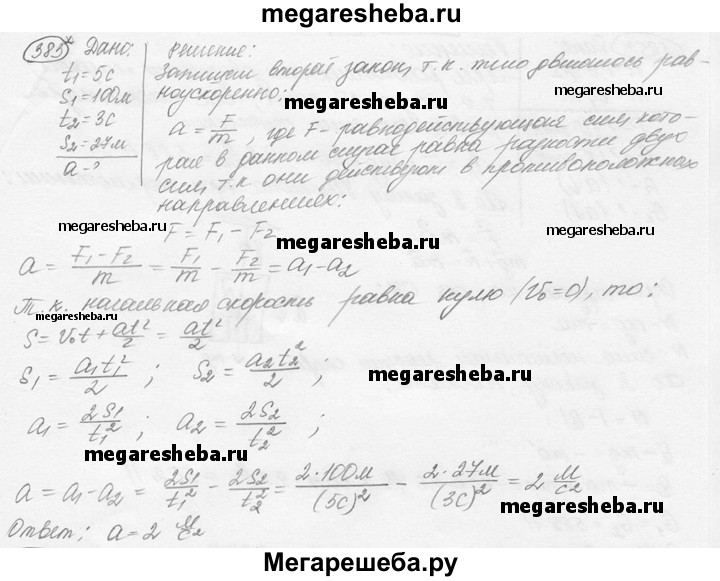 megaresheba.ru
385* Дано: Решение:
t₁=5с Запишем второй закон, т. к. тело двигалось рав-
S₁=100м ноускоренно:
t₂=3с a = F/m, где F - равнодействующая сил, кото-
S₂=27м рая в данном случае равна разности двух
a-? сил, т.к они действуют в противоположных
направлениях:
megaresheba.ru F = F₁ - F₂ megaresheba.ru megaresheba.ru
a = (F₁-F₂)/m = F₁/m - F₂/m = a₁-a₂
Т. к. начальная скорость равна нулю (V₀=0), то:
S = V₀t + at²/2 = at²/2
S₁ = a₁t₁²/2 ; S₂ = a₂t₂²/2 ,
megaresheba.ru
a₁ = 2S₁/t₁² ; a₂ = 2S₂/t₂² ;
megaresheba.ru
a = a₁-a₂ = 2S₁/t₁² - 2S₂/t₂² = 2·100м/(5с)² - 2·27м/(3с)² = 2 м/с²
megaresheba.ru
Ответ: a = 2 м/с²
Мегарешеба.ру